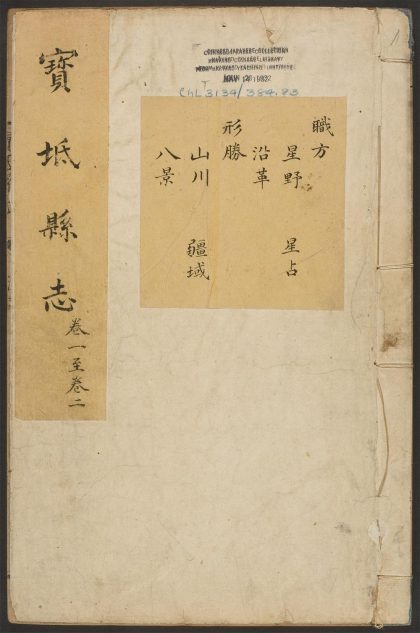 寶坻縣志 卷一至卷二
職方
星野 星占
沿革
形勝
山川 疆域
八景
ChL 3134/384.83
1